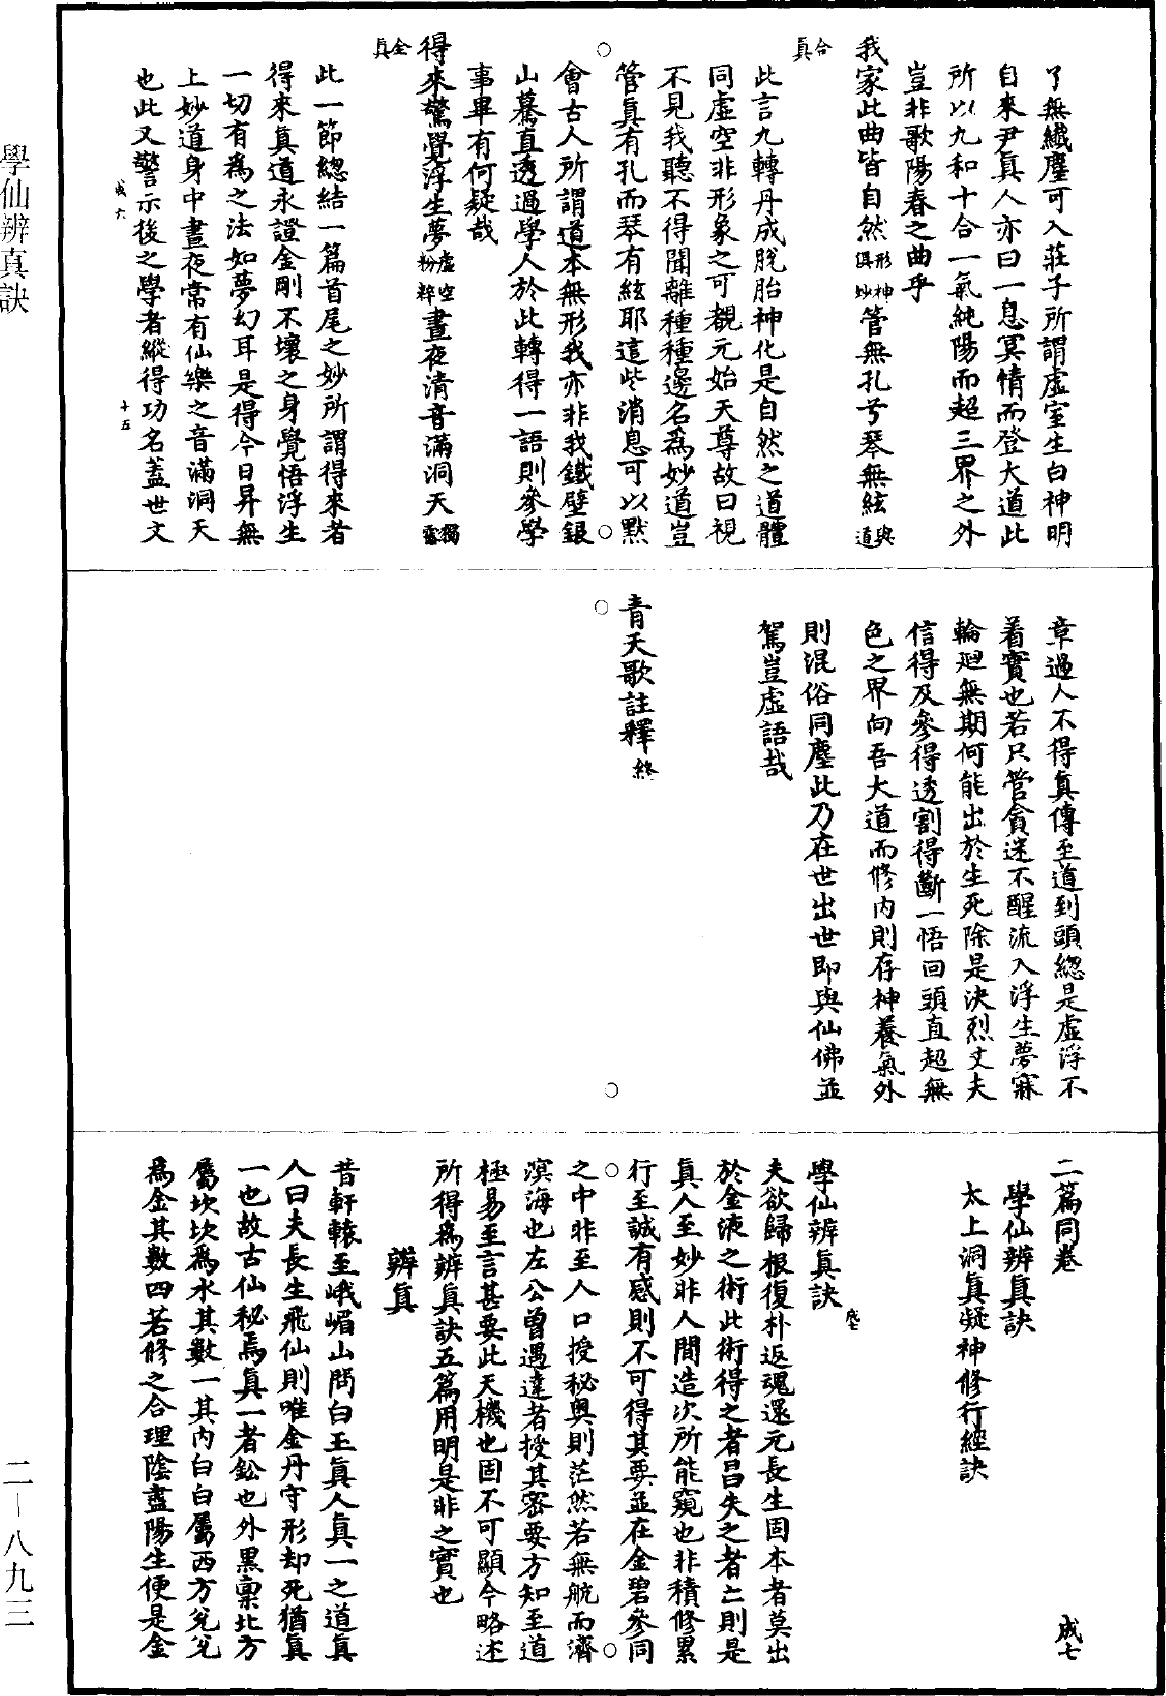 了無纖塵可入莊子所謂虛室生白神明
自來尹真人亦曰一息冥情而登大道此
所以九和十合一氣純陽而超三界之外
豈非歌陽春之曲乎
我家此曲皆自然形神俱妙管無孔兮琴無絃與道
合真
此言九轉丹成脫胎神化是自然之道體
同虛空非形象之可覩元始天尊故曰視
不見我聽不得聞離種種邊名為妙道豈
管真有孔而琴有絃耶這些消息可以默
會古人所謂道本無形我亦非我鐵壁銀
山驀直透過學人於此轉得一語則參學
事畢有何疑哉
得來驚覺浮生夢虛空粉粹晝夜清音滿洞天獨露
全真
此一節總結一篇首尾之妙所謂得來者
得來真道永證金剛不壞之身覺悟浮生
一切有為之法如夢幻耳是得今日昇無
上妙道身中晝夜常有仙樂之音滿洞天
也此又警示後之學者縱得功名蓋世文
成六
十五
章過人不得真傳至道到頭總是虛浮不
着實也若只管貪迷不醒流入浮生夢寐
輪迴無期何能出於生死除是決烈丈夫
信得及參得透割得斷一悟回頭直超無
色之界向吾大道而修內則存神養氣外
則混俗同塵此乃在世出世即與仙佛並
駕豈虛語哉
青天歌註釋終
二篇同卷
成七
學仙辨真訣
太上洞真凝神修行經訣
學仙辨真訣
夫欲歸根復朴返魂還元長生固本者莫出
於金液之術此術得之者昌失之者亡則是
真人至妙非人間造次所能窺也非積修累
行至誠有感則不可得其要並在金碧參同
之中非至人口授秘奧則茫然若無航而濟
溟海也左公曾遇達者授其密要方知至道
極易至言甚要此天機也固不可顯今略述
所得為辨真訣五篇用明是非之實也
辨真
昔軒轅至峨嵋山問白玉真人真一之道真
人曰夫長生飛仙則唯金丹守形却死猶真
一也故古仙秘焉真一者鈆也外黑稟北方
屬坎坎為水其數一其內白白屬西方兌兌
為金其數四若修之合理陰盡陽生便是金
學仙辨真訣
二—八九三